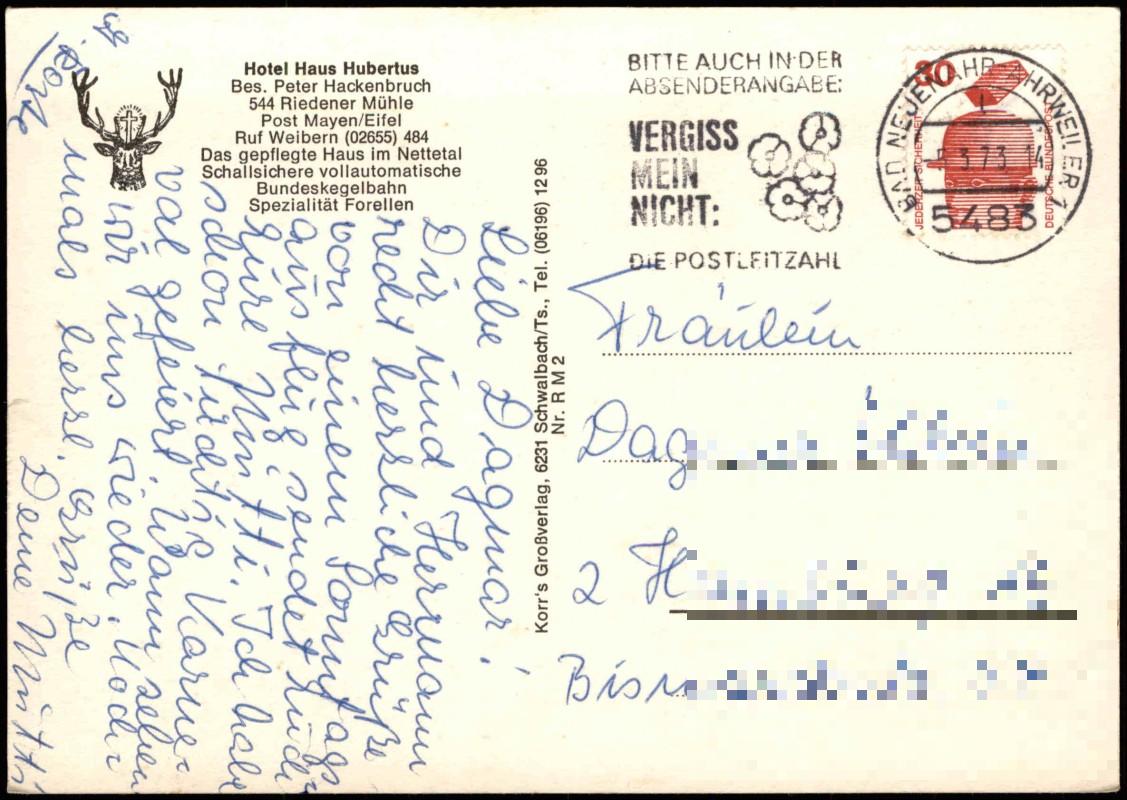 Hotel Haus Hubertus
Bes. Peter Hackenbruch
544 Riedener Mühle
Post Mayen/Eifel
Ruf Weibern (02655) 484
Das gepflegte Haus im Nettetal
Schallsichere vollautomatische
Bundeskegelbahn
Spezialität Forellen
Liebe Dagmar!
Dir und Hermann
recht herzliche Grüße
von einem Sonntags
ausflug sendet Euch
Eure Mutti. Ich habe
schon tüchtig Karne-
val gefeiert. Wann sehen
wir uns wieder. Noch-
mals herzl. Grüße
Deine Mutti
Korr's Großverlag, 6231 Schwalbach/Ts., Tel. (06196) 12 96
Nr. R M 2
BITTE AUCH IN DER
ABSENDERANGABE:
VERGISS
MEIN
NICHT:
DIE POSTLEITZAHL
30
JEDERZEIT SICHERHEIT
DEUTSCHE BUNDESPOST
BAD NEUENAHR-AHRWEILER 1
3.73.14
5483
Fräulein
Dag
2 H
Bism